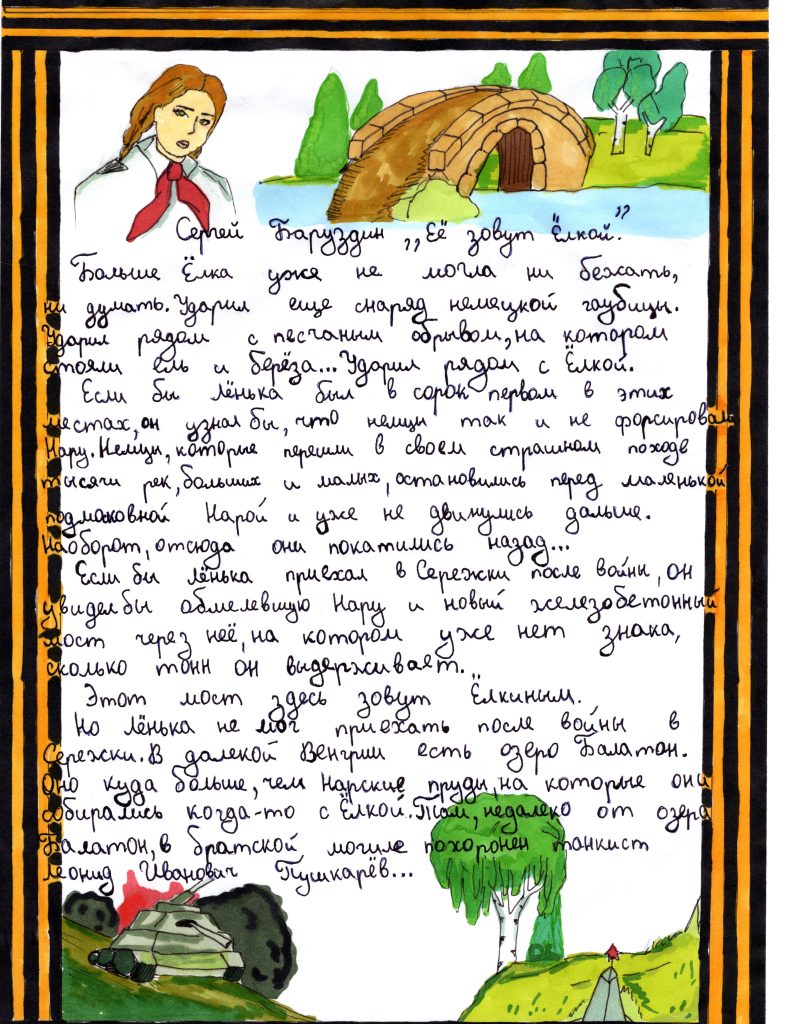 Сергей Баруздин „Её зовут Ёлкой."
Больше Ёлка уже не могла ни бежать,
ни думать. Ударил еще снаряд немецкой гаубицы.
Ударил рядом с песчаным обрывом, на котором
стояли ель и берёза... Ударил рядом с Ёлкой.
Если бы Лёнька был в сорок первом в этих
местах, он узнал бы, что немцы так и не форсировали
Нару. Немцы, которые перешли в своем страшном походе
тысячи рек, больших и малых, остановились перед маленькой
подмосковной Нарой и уже не двинулись дальше.
Наоборот, отсюда они покатились назад...
Если бы Лёнька приехал в Сережки после войны, он
увидел бы обмелевшую Нару и новый железобетонный
мост через неё, на котором уже нет знака,
сколько тонн он выдерживает.
Этот мост здесь зовут Ёлкиным.
Но Лёнька не мог приехать после войны в
Сережки. В далекой Венгрии есть озеро Балатон.
Оно куда больше, чем Нарские пруды, на которые они
собирались когда-то с Ёлкой. Там, недалеко от озера
Балатон, в братской могиле похоронен танкист
Леонид Иванович Пушкарёв...